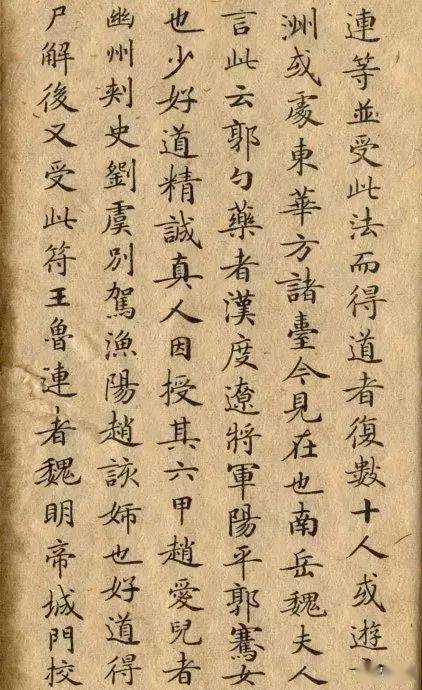 連等並受此法而得道者復數十人或遊
洲或處東華方諸臺今見在也南岳魏夫人
言此云郭勺藥者漢度遼將軍陽平郭騫女
也少好道精誠真人因授其六甲趙愛兒者
幽州刾史劉虞別駕漁陽趙該姊也好道得
尸解後又受此符王魯連者魏明帝城門校